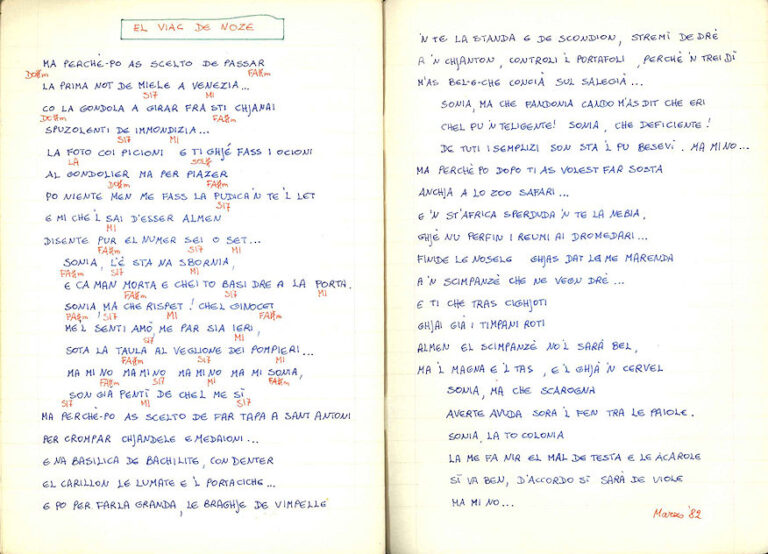 EL VIAC DE NOZE
MA PERCHÈ-PO AS SCELTO DE PASSAR
DO#m FA#m
LA PRIMA NOT DE MIELE A VENEZIA...
SI7 MI
CO LA GONDOLA A GIRAR FRA STI CHJANAI
DO#m FA#m
SPUZOLENTI DE IMMONDIZIA...
SI7 MI
LA FOTO COI PICIONI E TI GHJÉ FASS I OCIONI
LA SOL#
AL GONDOLIER MA PER PIAZER
DO#m FA#m
PO NIENTE MEN ME FASS LA PUDICA 'N TE 'L LET
SI7
E MI CHE 'L SAI D'ESSER ALMEN
MI
DISENTE PUR EL NUMER SEI O SET...
FA#m SI7 MI
SONIA, L'È STA NA SBORNIA,
FA#m SI7 MI
E CA MAN MORTA E CHEI TO BASI DRE A LA PORTA.
FA#m SI7 MI
SONIA, MA CHE RISPET! CHEL GINOCET
FA#m SI7 MI FA#m
ME 'L SENTI AMÒ, ME PAR SIA IERI,
SI7 MI
SOTA LA TAULA AL VEGLIONE DEI POMPIERI...
FA#m SI7 MI
MA MI NO MA MI NO MA MI NO MA MI SONIA,
FA#m SI7 MI FA#m
SON GIA PENTÌ DE CHEL ME SÌ
SI7 MI SI7
MA PERCHÈ-PO AS SCELTO DE FAR TAPA A SANT ANTONI
PER CROMPAR CHJANDELE E MEDAIONI...
E NA BASILICA DE BACHILITE, CON DENTER
EL CARILLON LE LUMATE E 'L PORTACICHE...
E PO PER FARLA GRANDA, LE BRAGHJE DE VIMPELLE
'N TE LA STANDA E DE SCONDION, STREMÌ DE DRÉ
A 'N CHJANTON, CONTROLI 'L PORTAFOLI, PERCHÈ 'N TREI DÌ
M'AS BEL-E-CHE CONCIÀ SUL SALEGIÀ...
SONIA, MA CHE FANDONIA CANDO M'AS DIT CHE ERI
CHEL PU 'N TELIGENTE! SONIA, CHE DEFICIENTE!
DE TUTI I SEMPLIZI SON STA 'L PU BESEVÌ. MA MI NO...
MA PERCHÈ PO DOPO TI AS VOLEST FAR SOSTA
ANCHJA A LO ZOO SAFARI...
E 'N ST'AFRICA SPERDUDA 'N TE LA NEBIA,
GHJÈ NU PERFIN I REUMI AI DROMEDARI...
FINIDE LE NOSELE GHJAS DAT LE ME MARENDA
A 'N SCIMPANZÈ CHE NE VEGN DRÉ...
E TI CHE TRAS CIGHJOTI
GHJAI GIÀ I TIMPANI ROTI
ALMEN EL SCIMPANZÈ NO 'L SARÀ BEL,
MA 'L MAGNA E 'L TAS, E 'L GHJÀ 'N CERVEL
SONIA, MA CHE SCAROGNA
AVERTE AVUDA SORA 'L FEN TRA LE PAIOLE.
SONIA, LA TO COLONIA
LA ME FA NIR EL MAL DE TESTA E LE ACAROLE
SÌ VA BEN, D'ACCORDO SÌ SARÀ DE VIOLE
MA MI NO...
Marzo '82